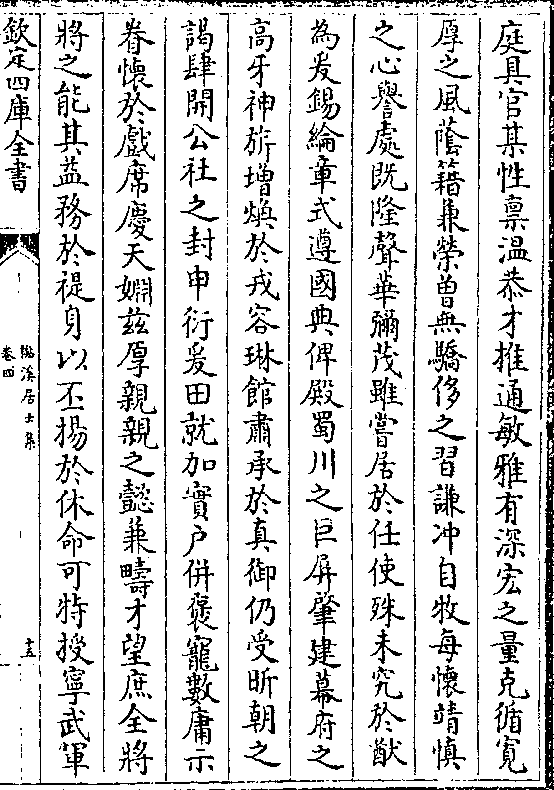 庭具官某性禀温恭才推通敏雅有深宏之量克循寛
厚之風蔭籍兼榮曽無驕侈之習謙冲自牧每懷靖慎
之心譽處既隆聲華彌茂雖嘗居於任使殊未究於猷
為爰錫綸章式遵國典俾殿蜀川之巨屏肇建幕府之
高牙神旂増煥於戎容琳館肅承於真御仍受昕朝之
謁肆開公社之封申衍爰田就加實户併褒寵數庸示
眷懷於戲席慶天婣兹厚親親之懿兼疇才望庶全將
將之能其益務於禔身以丕揚於休命可特授寧武軍
欽定四庫全書
溪居士集
卷四
十五